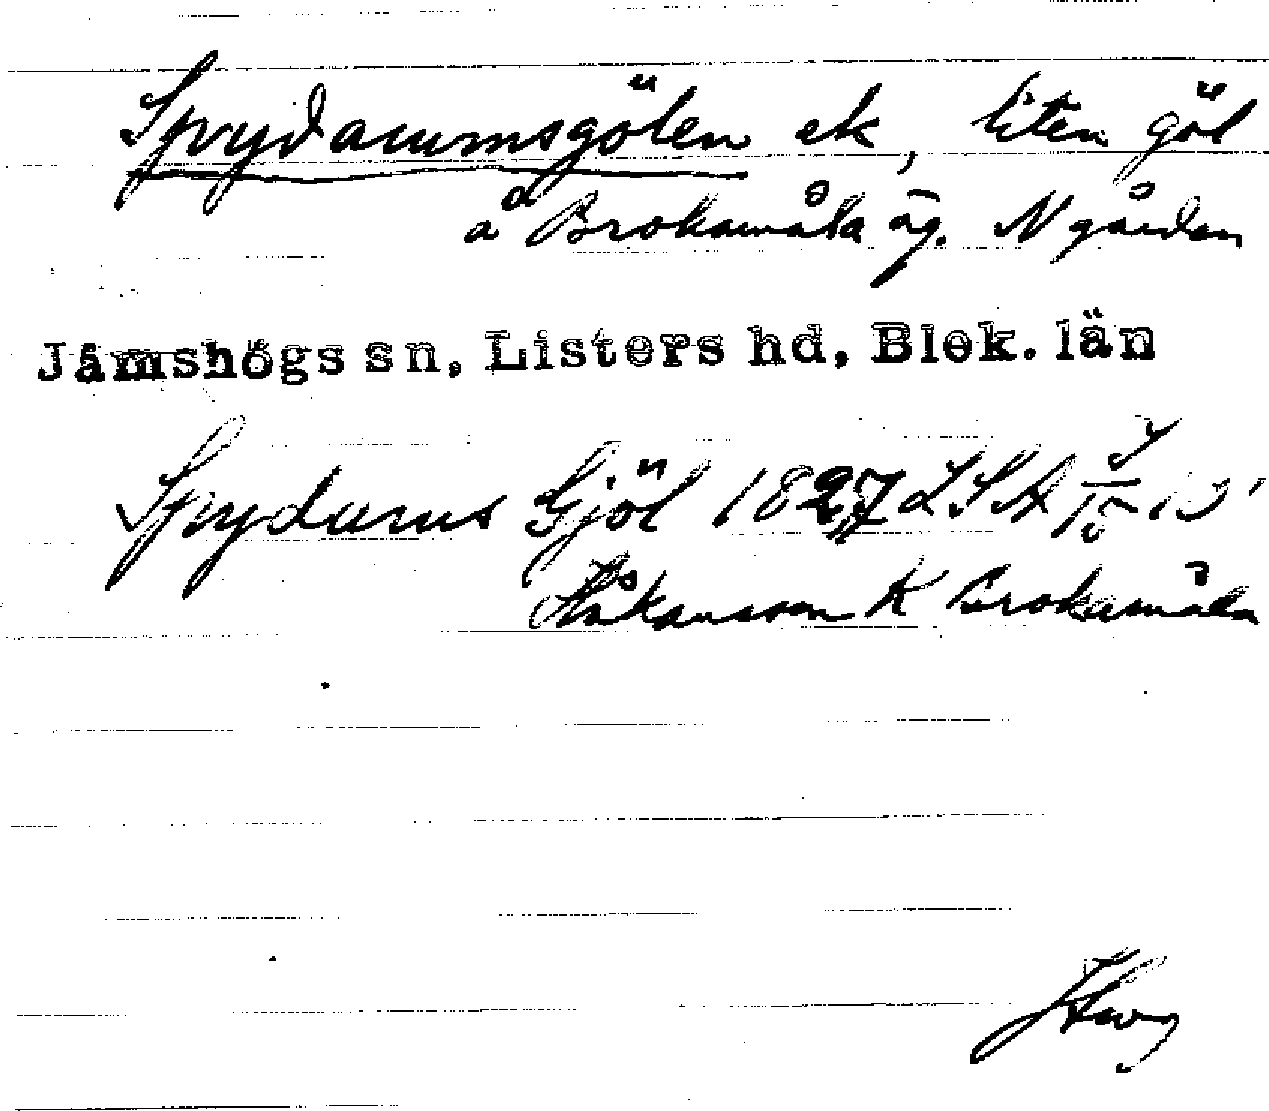 Sprydarumsgölen ek, liten göl
å Brokamåla äg. N gården
Jämshögs sn, Listers hd, Blek. län
Sprydarus Gjöl 1827 LSA
Håkansson K Brokamåla